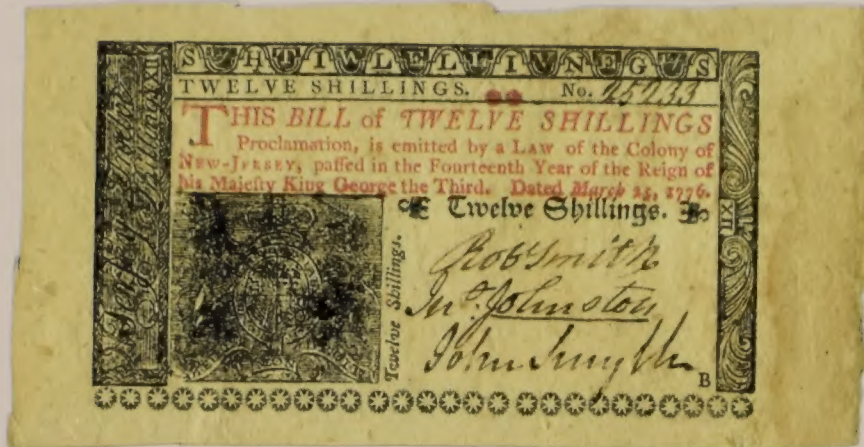 SHTIWLELLIVNEGS
TWELVE SHILLINGS. No. 25233
THIS BILL of TWELVE SHILLINGS
Proclamation, is emitted by a LAW of the Colony of
NEW-JERSEY, paſſed in the Fourteenth Year of the Reign of
his Majeſty King George the Third. Dated March 25, 1776.
Twelve Shillings.
Twelve Shillings.
Rob Smith
Jno. Johnston
John Smyth
B
XII
XII